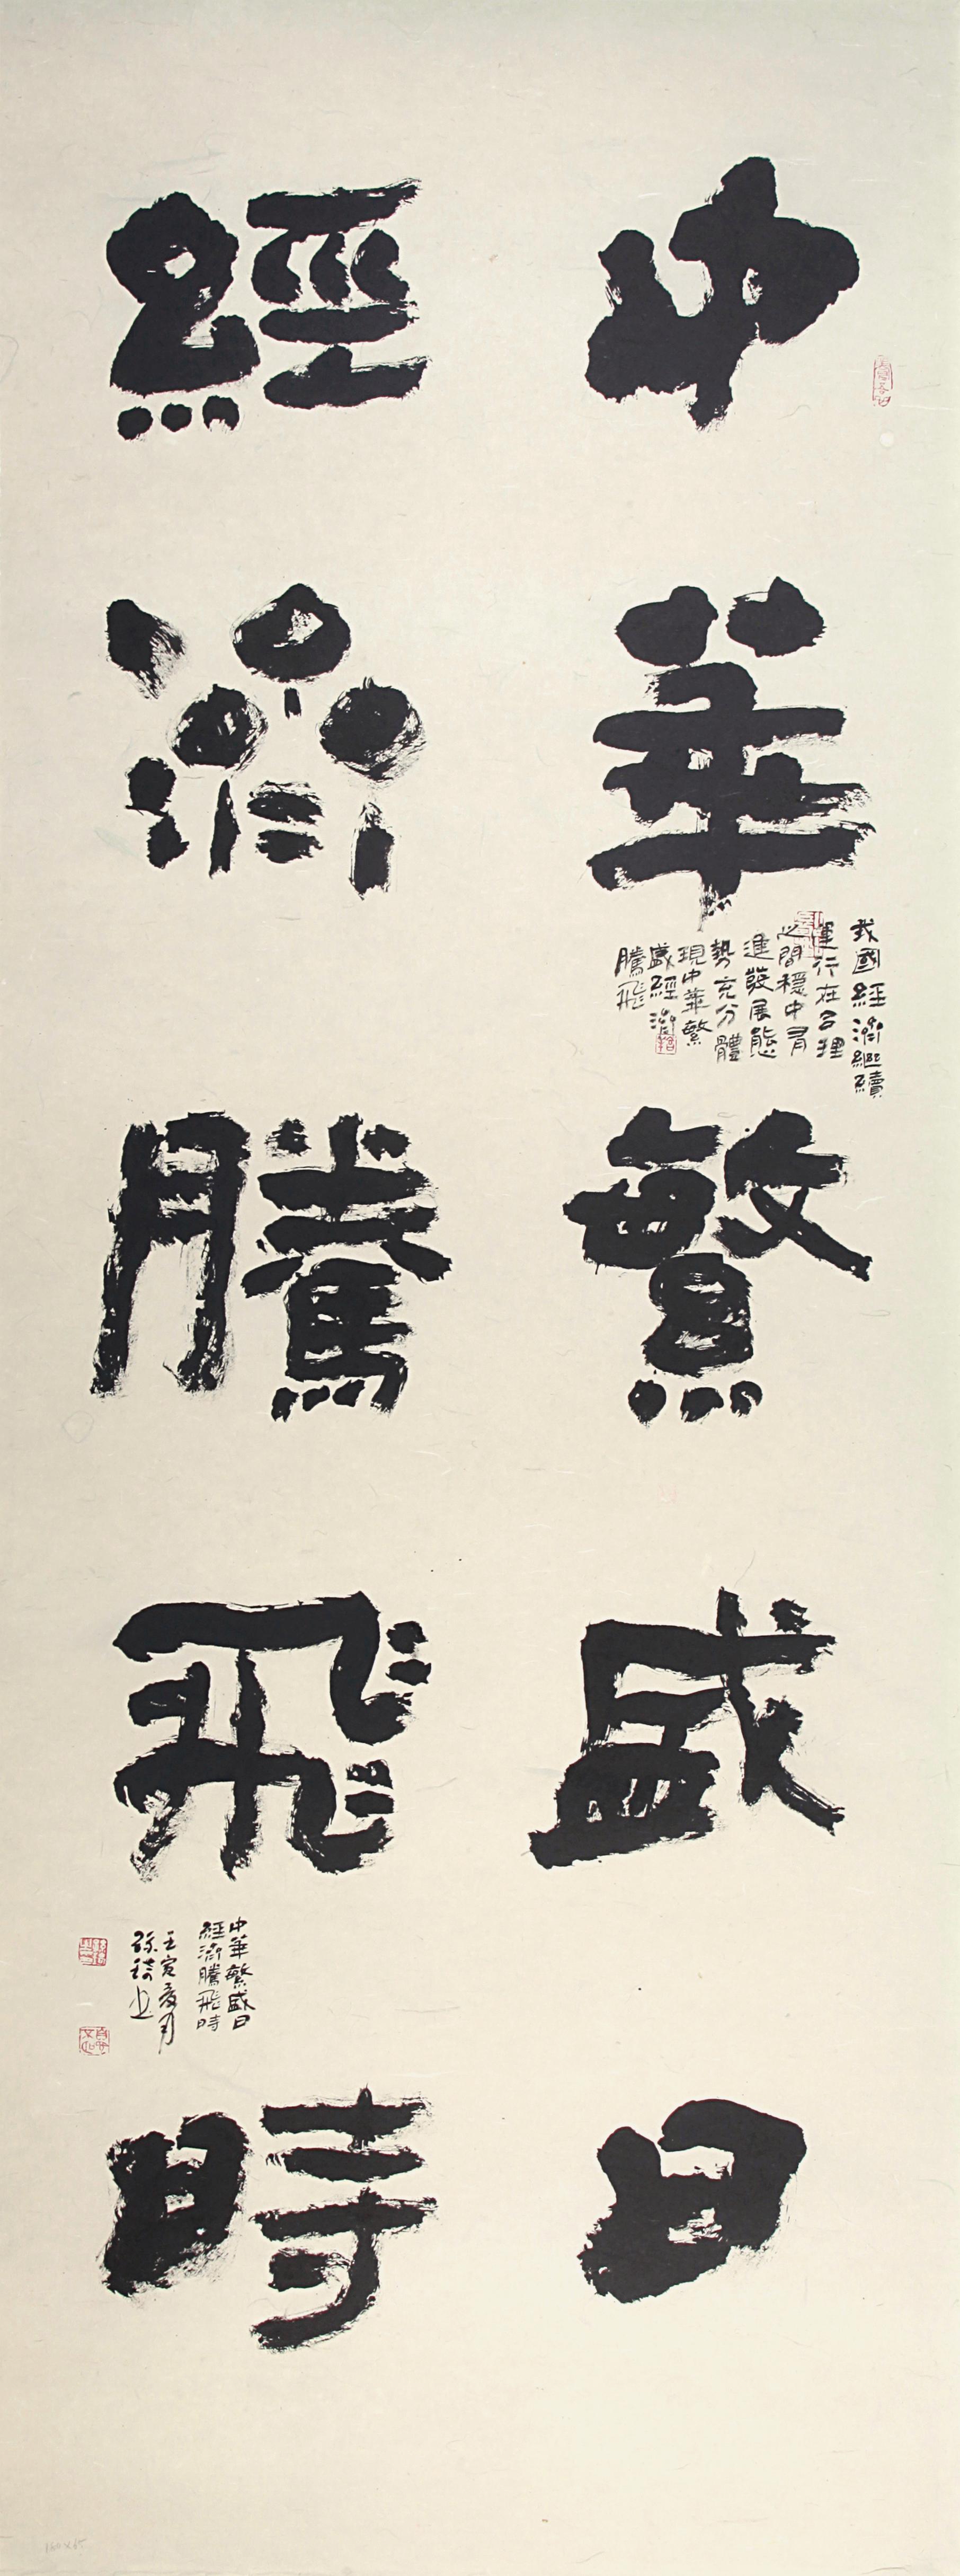 中華繁盛日
經濟騰飛時
我國經濟繼續
運行在合理
之間穩中有
進發展態
勢充分體
現中華繁
盛經濟
騰飛
中華繁盛日
經濟騰飛時
壬寅夏月
孫琦